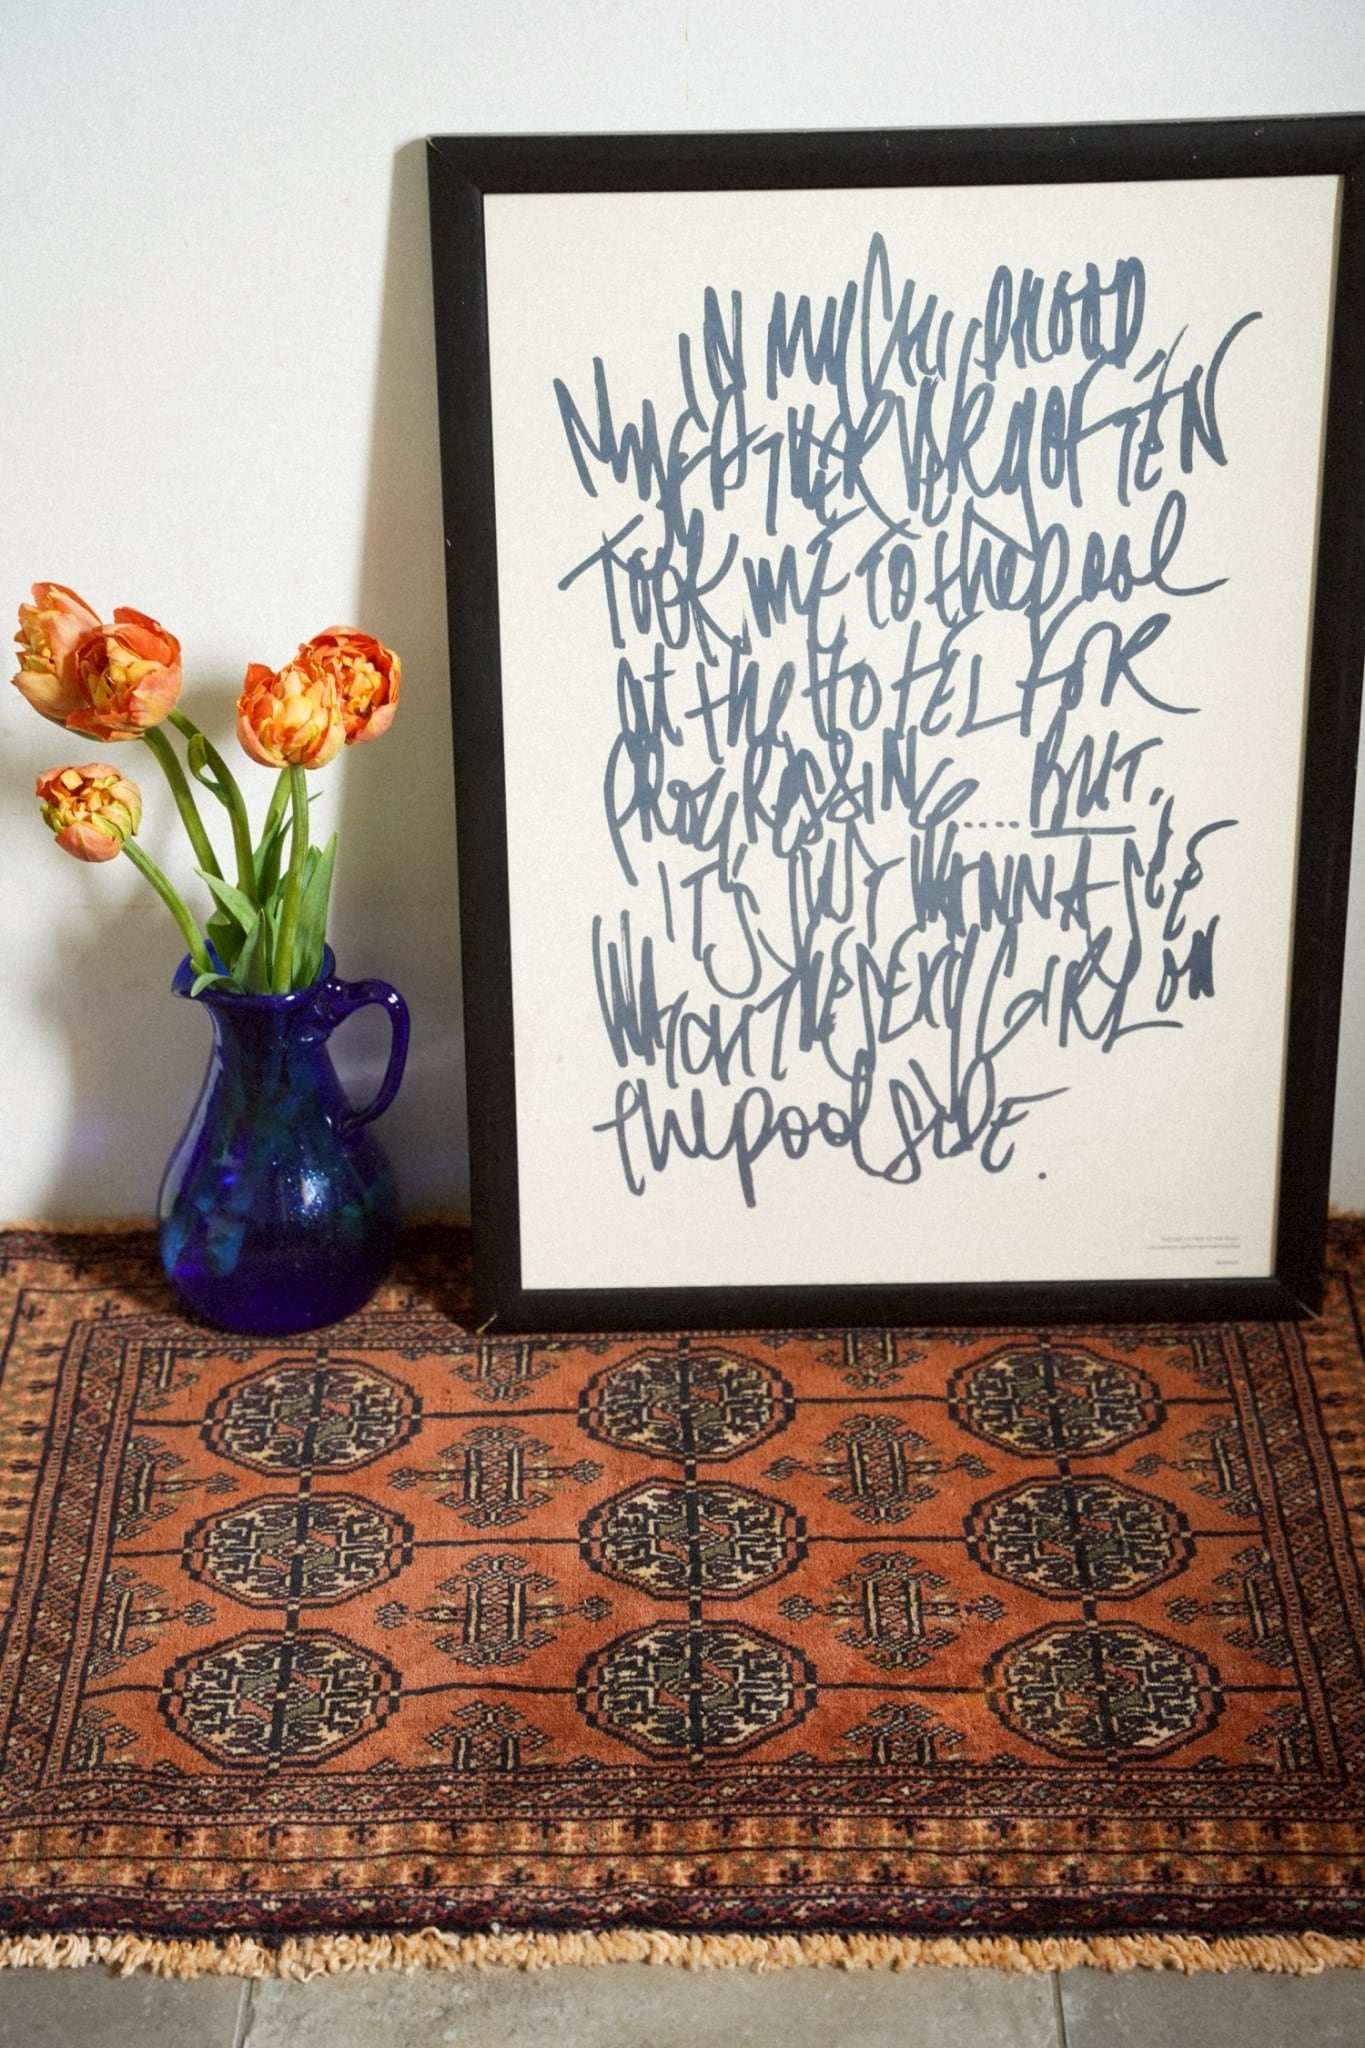 IN MY CHILDHOOD
MY FATHER VERY OFTEN
TOOK ME TO the pool
At the HOTEL FOR
PROGRESSING..... BUT.
IT'S JUST WANNA SEE
WATCH THE SEXY GIRL ON
the pool SIDE.